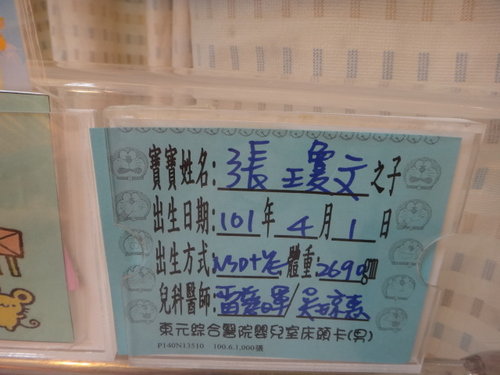 寶寶姓名:張瓊文之子
出生日期:101年4月1日
出生方式:NSD+悲體重:2690gm
兒科醫師:雷/吳
東元綜合醫院嬰兒室床頭卡(男)
P140N13510 100.6.1,000張